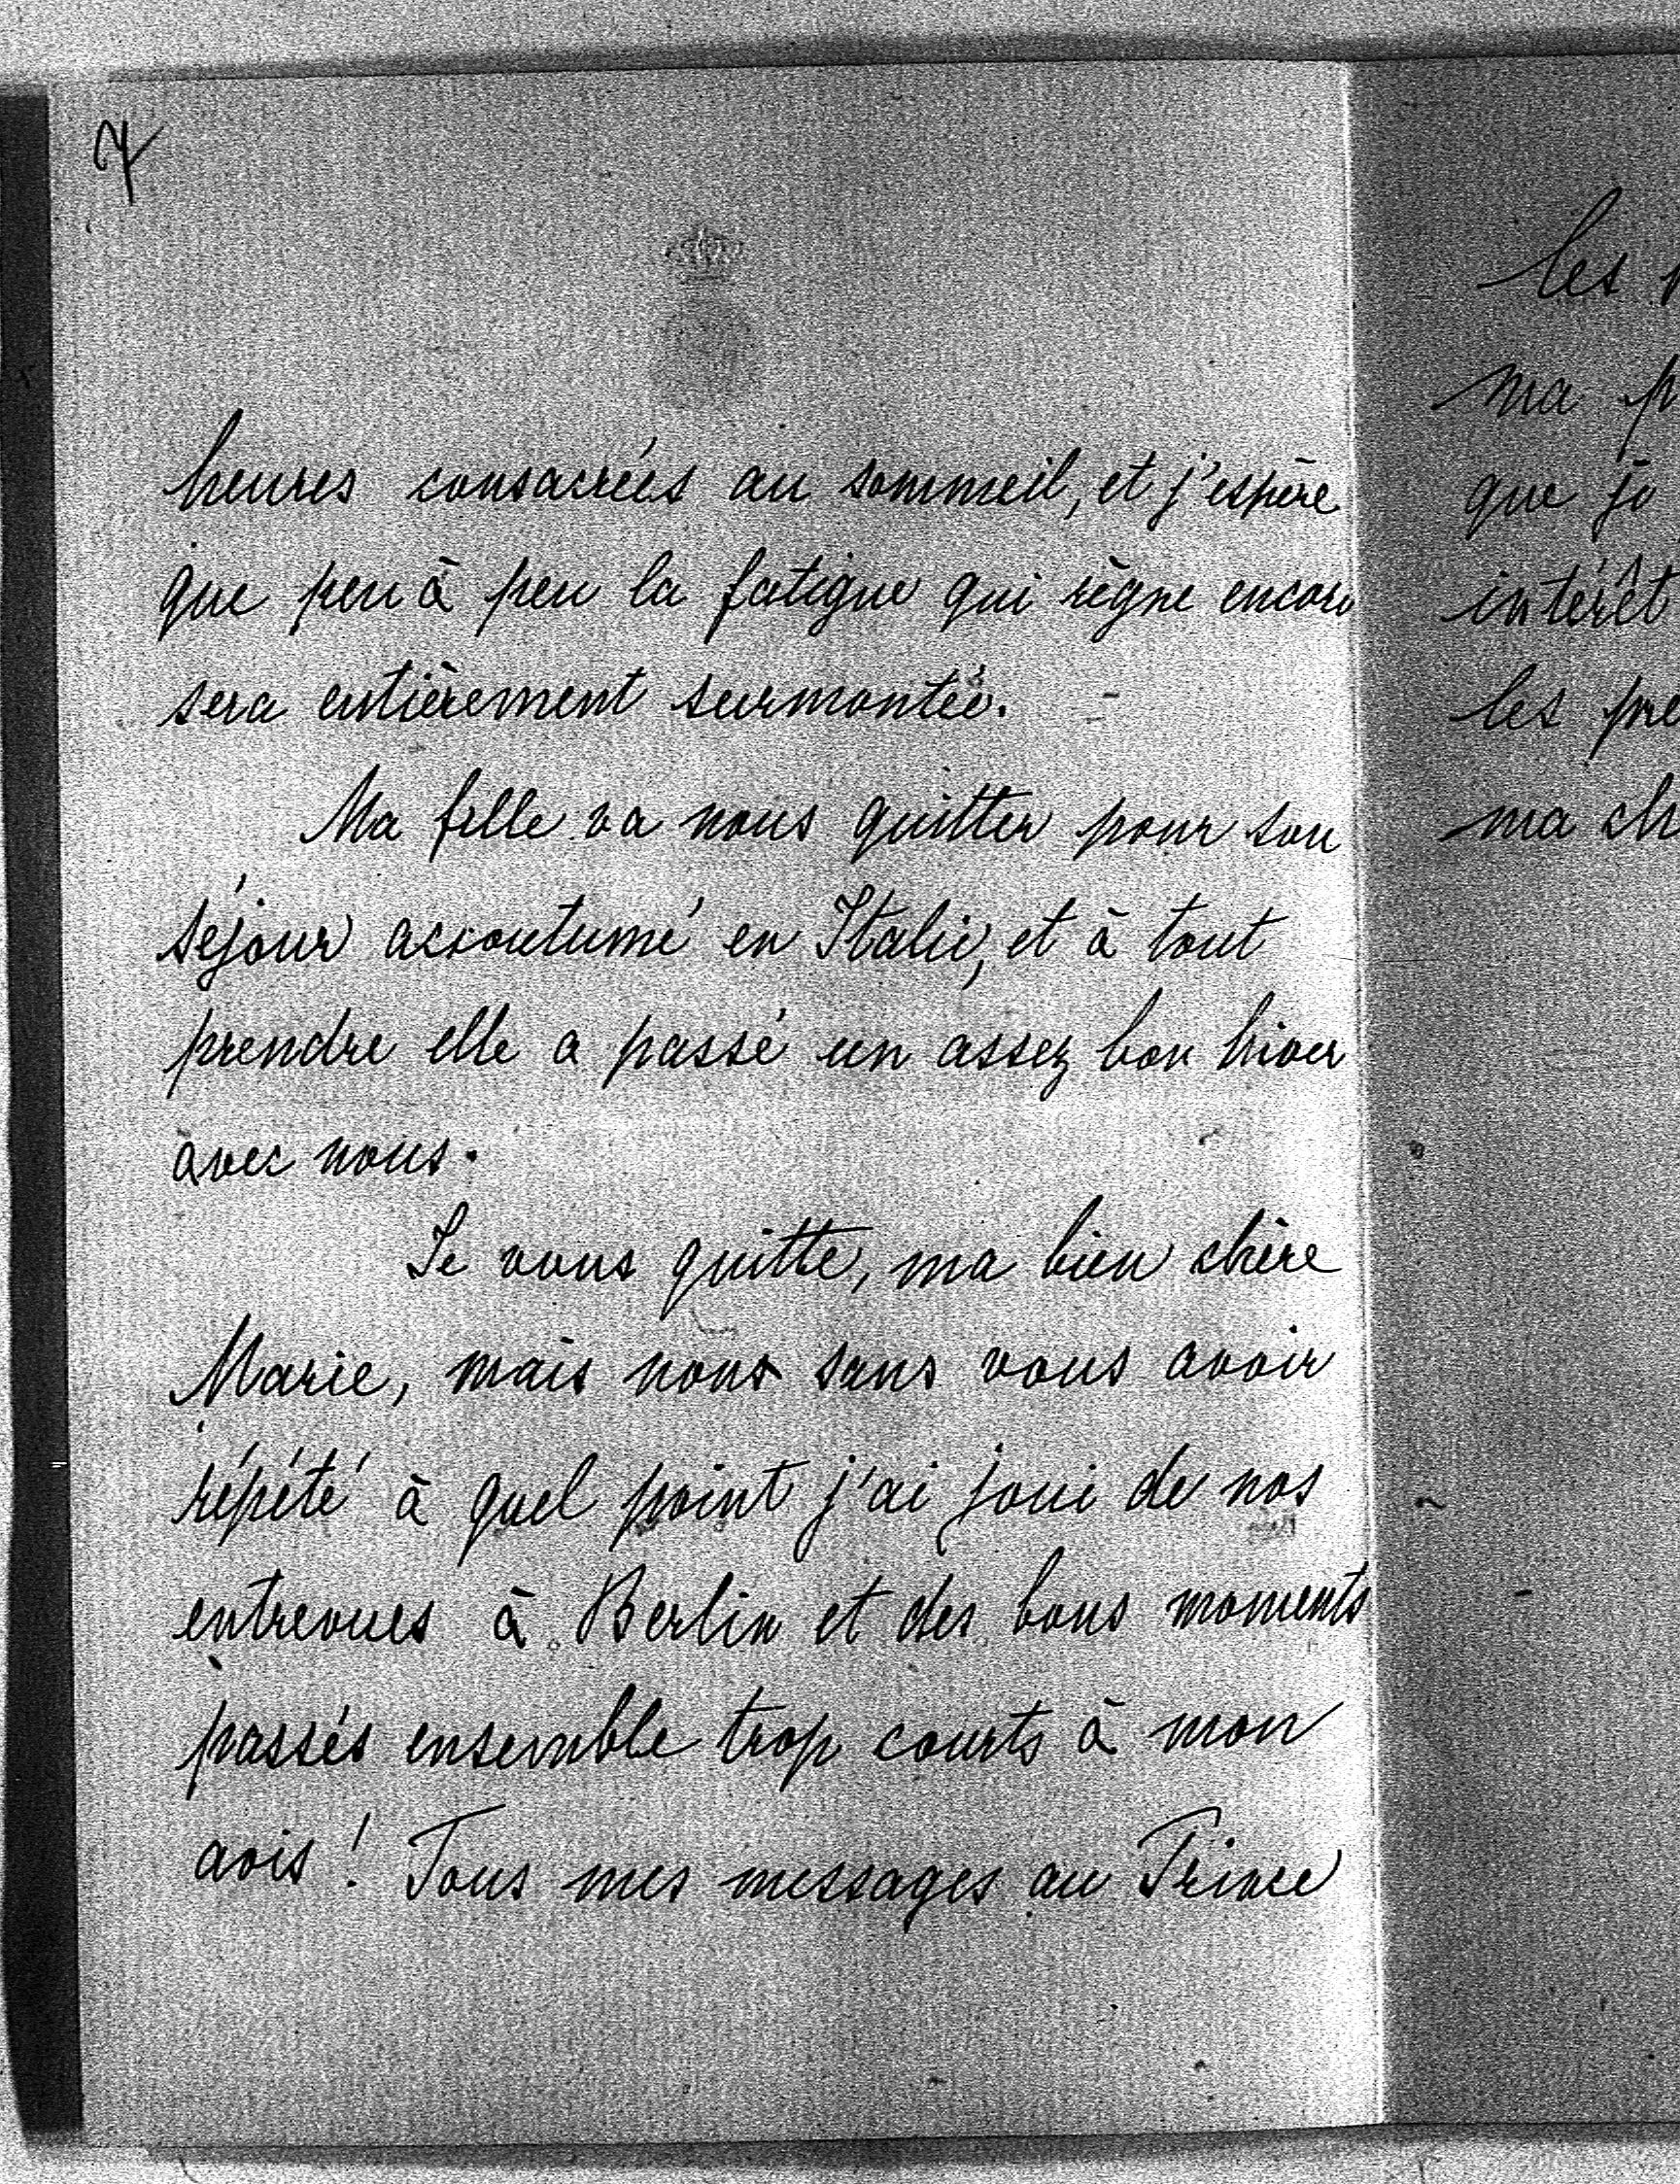 7
heures consacrées au sommeil, et j'espère
que peu à peu la fatigue qui règne encore
sera entièrement surmontée. -
Ma fille va nous quitter pour son
séjour accoutumé en Italie, et à tout
prendre elle a passé un assez bon hiver
avec nous.
Je vous quitte, ma bien chère
Marie, mais non sans vous avoir
répété à quel point j'ai joui de nos
entrevues à Berlin et des bons moments
passés ensemble trop courts à mon
avis! Tous mes messages au Prince
les
ma
que je
intérêt
les
ma